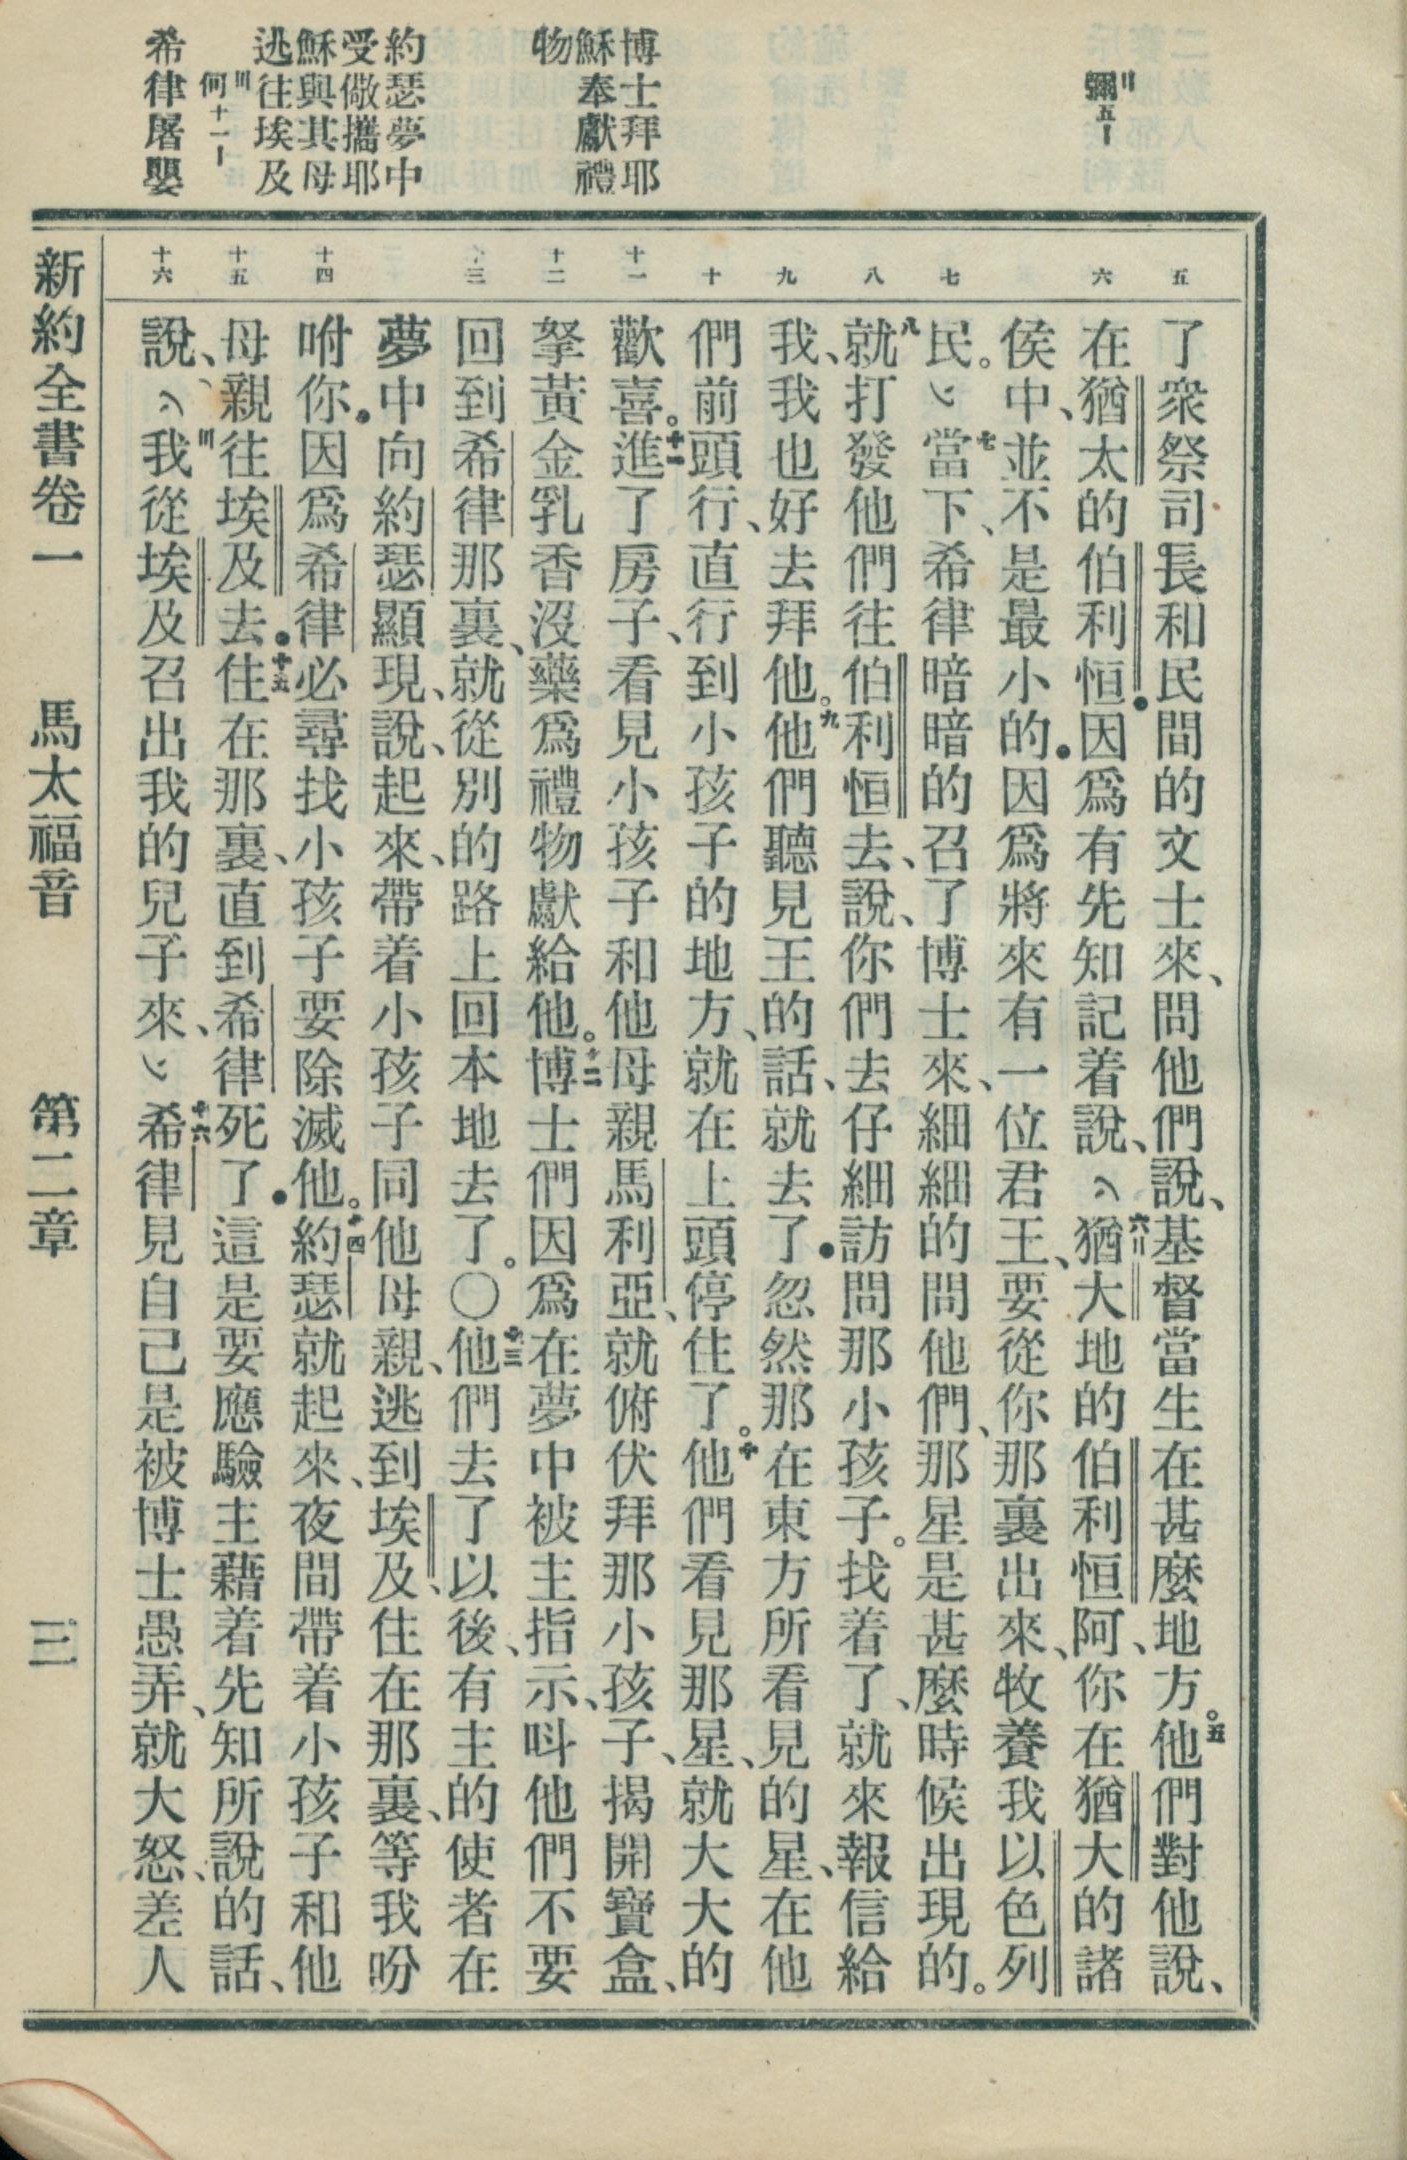 彌五一
博士拜耶
穌奉獻禮
物
約瑟夢中
受儆攜耶
穌與其母
逃往埃及
何十一一
希律屠嬰
五 六 七 八 九 十 十一 十二 十三 十四 十五 十六
了衆祭司長和民間的文士來、問他們說、基督當生在甚麼地方。五他們對他說、
在猶太的伯利恒●因爲有先知記着說、六猶大地的伯利恒阿、你在猶大的諸
侯中、並不是最小的●因爲將來有一位君王、要從你那裏出來、牧養我以色列
民。七當下、希律暗暗的召了博士來、細細的問他們、那星是甚麼時候出現的。
八就打發他們往伯利恒去、說、你們去仔細訪問那小孩子。找着了、就來報信給
我、我也好去拜他。九他們聽見王的話、就去了●忽然那在東方所看見的星、在他
們前頭行、直行到小孩子的地方、就在上頭停住了。十他們看見那星、就大大的
歡喜。十一進了房子、看見小孩子和他母親馬利亞、就俯伏拜那小孩子、揭開寶盒、
拏黃金乳香沒藥爲禮物獻給他。十二博士們因爲在夢中被主指示、呌他們不要
回到希律那裏、就從別的路上回本地去了。〇十三他們去了以後、有主的使者在
夢中向約瑟顯現、說、起來、帶着小孩子同他母親、逃到埃及、住在那裏、等我吩
咐你●因爲希律必尋找小孩子要除滅他。十四約瑟就起來、夜間帶着小孩子和他
母親往埃及去●十五住在那裏、直到希律死了●這是要應驗主藉着先知所說的話、
說、我從埃及召出我的兒子來、十六希律見自己是被博士愚弄、就大怒、差人
新約全書卷一 馬太福音 第二章 三